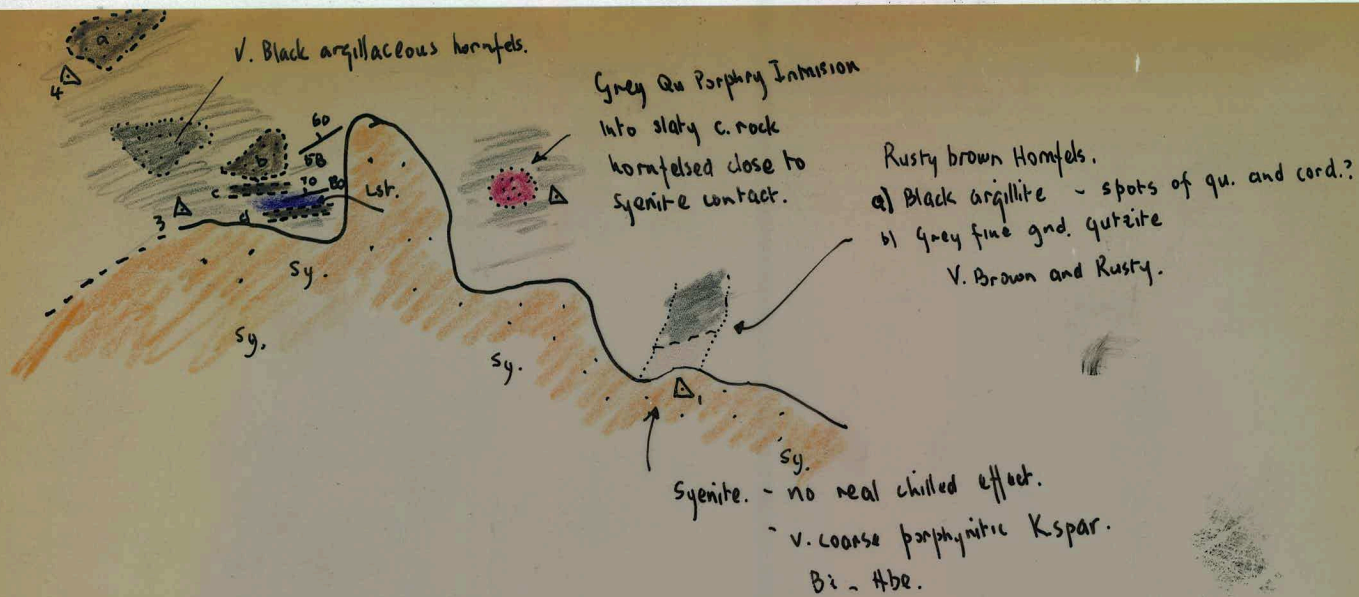 a
4
V. Black argillaceous hornfels.
60
b
58
c
70 80
d
Lst.
3
Sy.
Sy.
Sy.
Sy.
Grey Qu Porphry Intrusion
into slaty c. rock
hornfelsed close to
Syenite contact.
Rusty brown Hornfels.
a) Black argillite - spots of qu. and cord.?
b) Grey fine gnd. qutzite
V. Brown and Rusty.
1
Syenite. - no real chilled effect.
- v. coarse porphyritic Kspar.
Bi - Hbe.